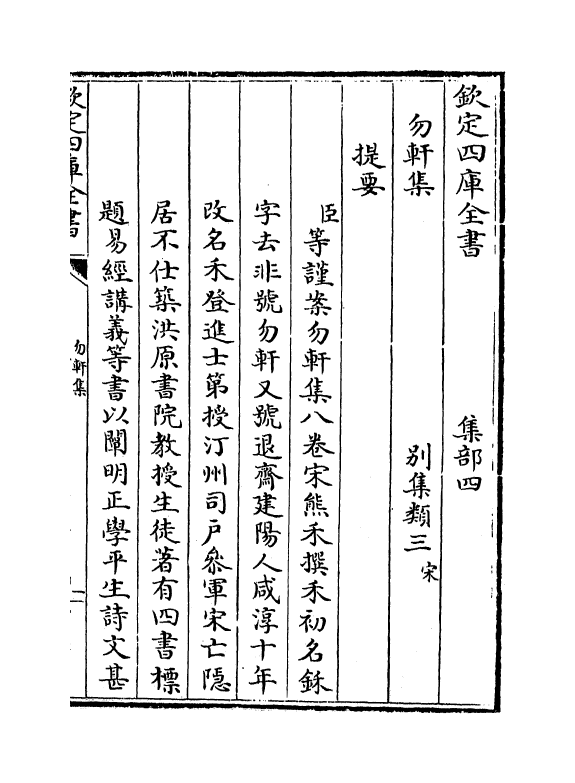 欽定四庫全書　集部四
勿軒集　別集類三宋
提要
臣等謹案勿軒集八卷宋熊禾撰禾初名鉌
字去非號勿軒又號退齋建陽人咸淳十年
改名禾登進士第授汀州司戶叅軍宋亡隱
居不仕築洪原書院教授生徒著有四書標
題易經講義等書以闡明正學平生詩文甚
欽定四庫全書
勿軒集
一